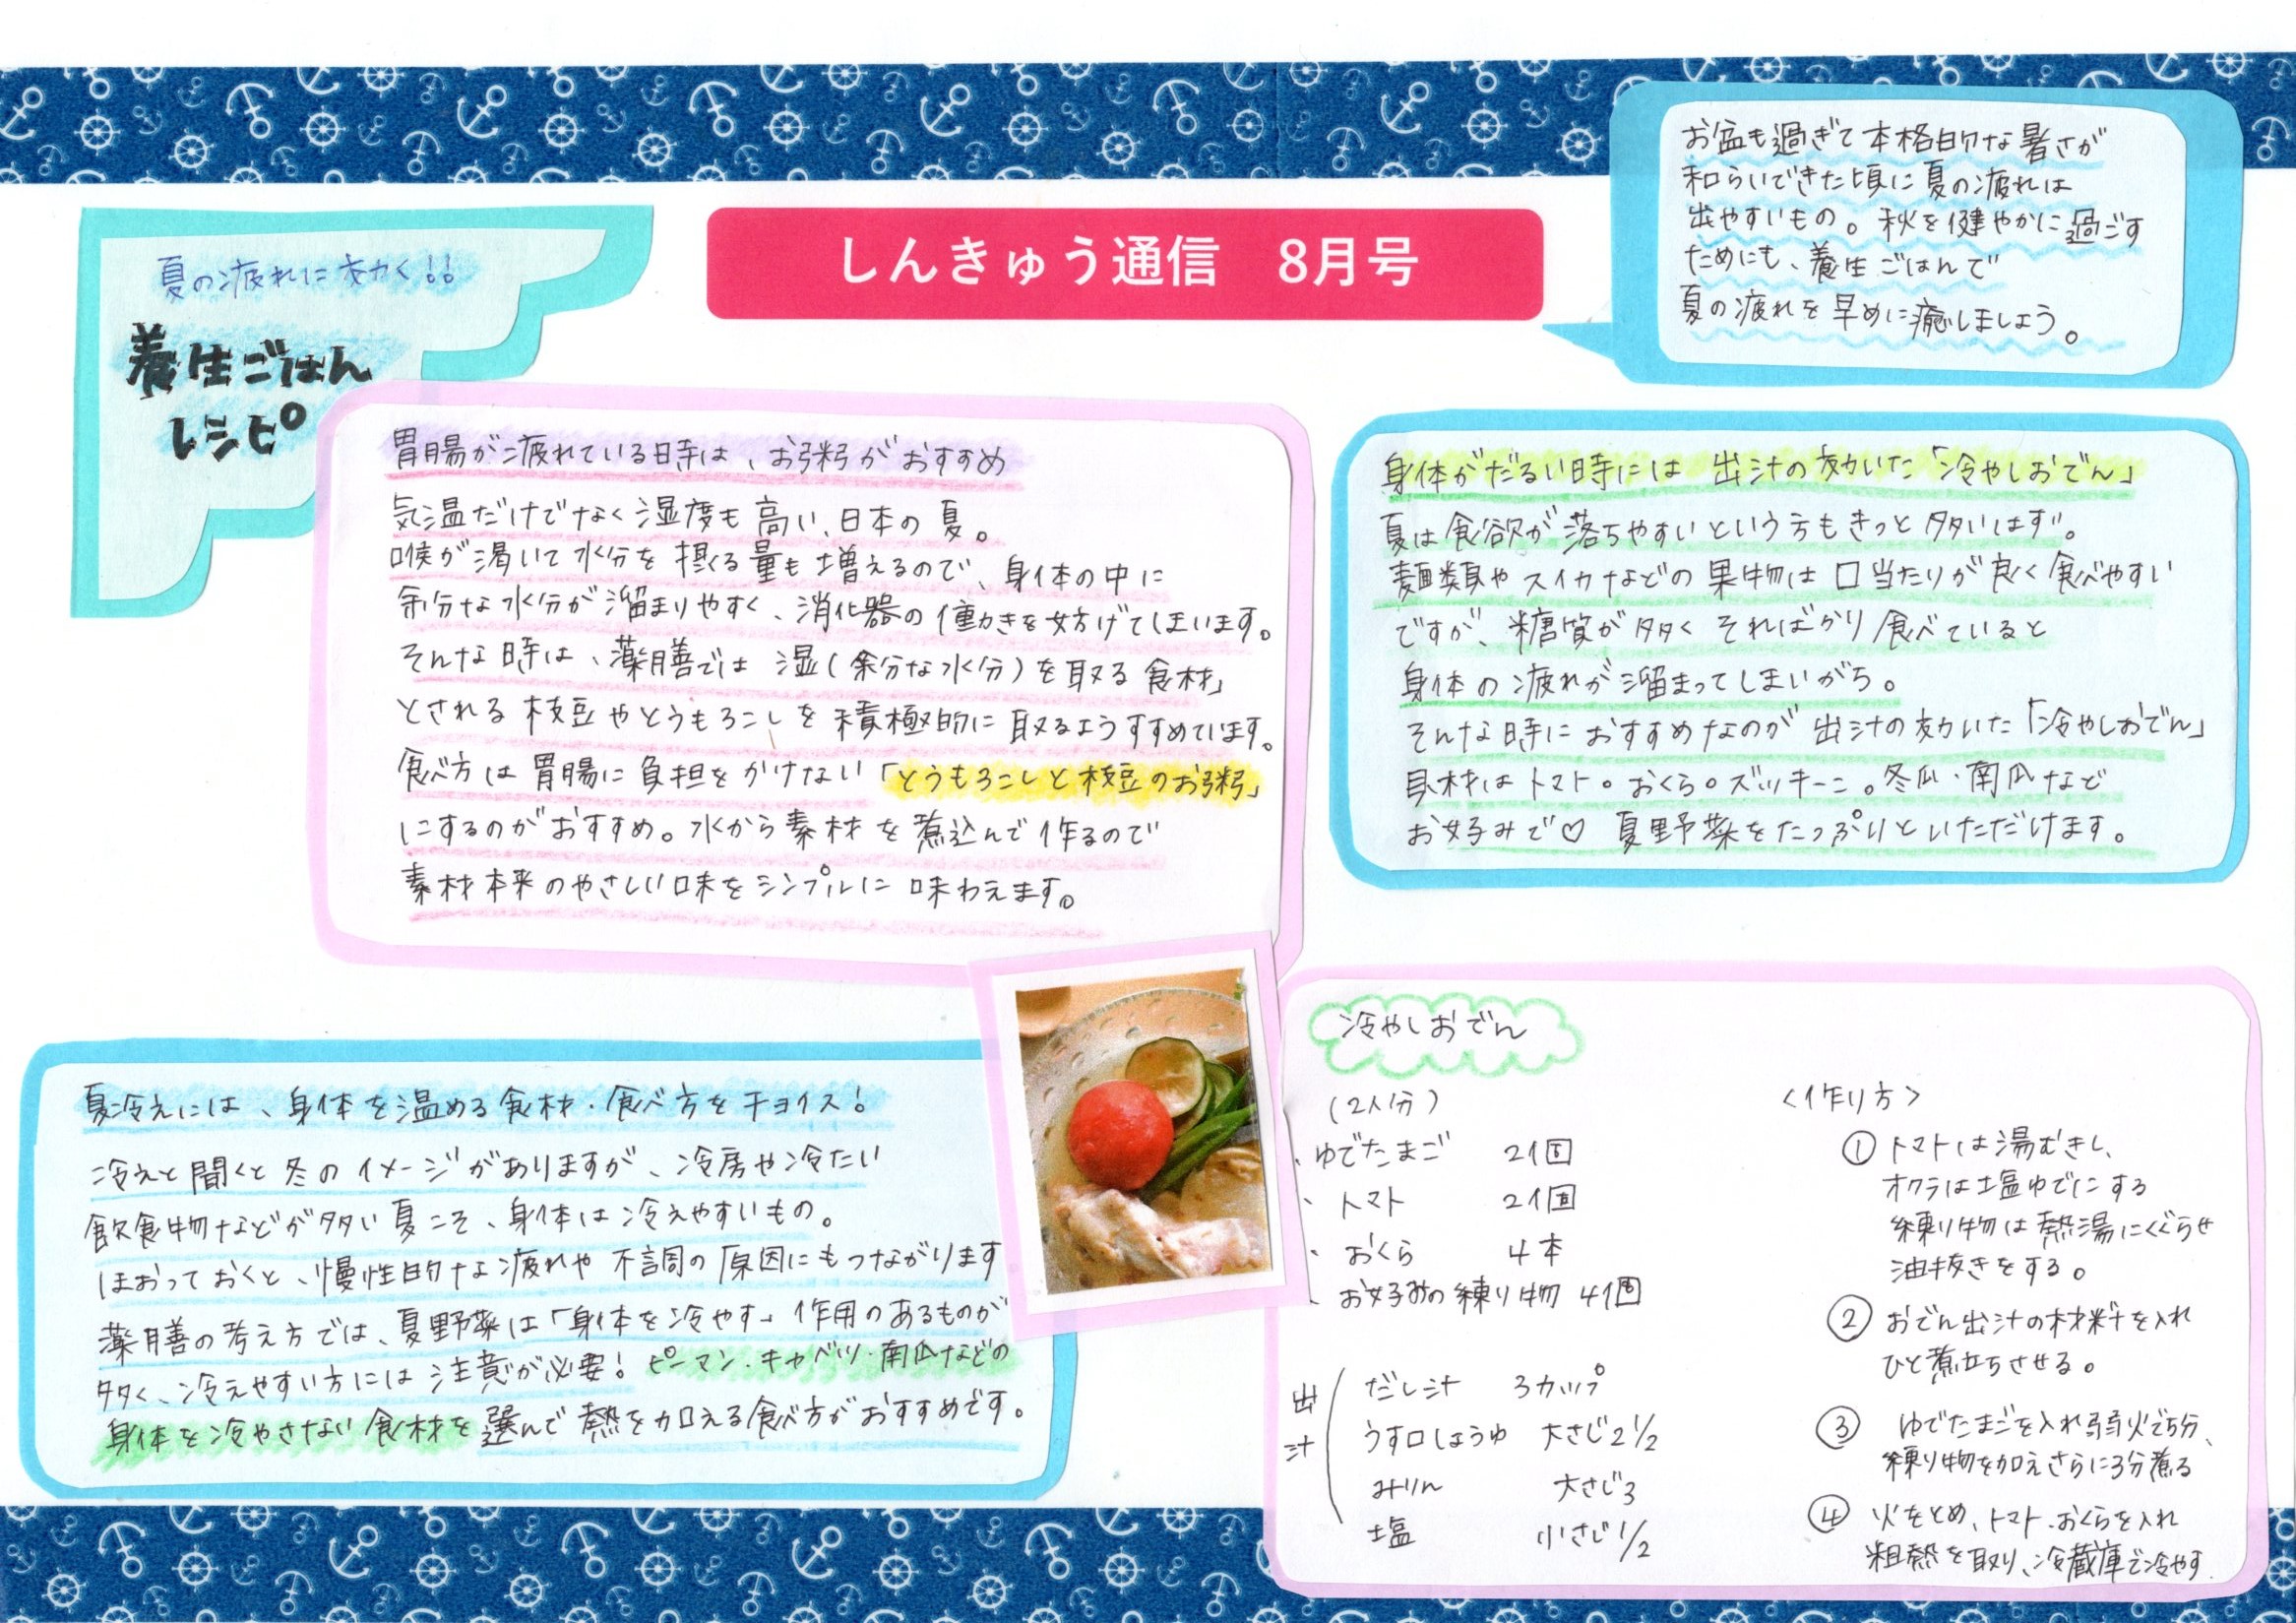 しんきゅう通信　8月号
お盆も過ぎて本格的な暑さが
和らいできた頃に夏の疲れは
出やすいもの。秋を健やかに過ごす
ためにも、養生ごはんで
夏の疲れを早めに癒しましょう。
夏の疲れに効く!!
養生ごはん
レシピ
胃腸が疲れている時は、お粥がおすすめ
気温だけでなく湿度も高い、日本の夏。
喉が渇いて水分を摂る量も増えるので、身体の中に
余分な水分が溜まりやすく、消化器の働きを妨げてしまいます。
そんな時は、薬膳では湿(余分な水分)を取る食材」
とされる枝豆やとうもろこしを積極的に取るようすすめています。
食べ方は胃腸に負担をかけない「とうもろこしと枝豆のお粥」
にするのがおすすめ。水から素材を煮込んで作るので
素材本来のやさしい味をシンプルに味わえます。
身体がだるい時には 出汁の効いた「冷やしおでん」
夏は食欲が落ちやすいという方もきっと多いはず。
麺類やスイカなどの果物は口当たりが良く食べやすい
ですが、糖質が多く そればかり食べていると
身体の疲れが溜まってしまいがち。
そんな時におすすめなのが 出汁の効いた「冷やしおでん」
具材はトマト。おくら。ズッキーニ。冬瓜・南瓜など
お好みで♡ 夏野菜をたっぷりといただけます。
夏冷えには、身体を温める食材・食べ方をチョイス!
冷えと聞くと冬のイメージがありますが、冷房や冷たい
飲食物などが多い夏こそ、身体は冷えやすいもの。
ほおっておくと、慢性的な疲れや不調の原因にもつながります
薬膳の考え方では、夏野菜は「身体を冷やす」作用のあるものが
多く、冷えやすい方には注意が必要! ピーマン・キャベツ・南瓜などの
身体を冷やさない食材を選んで熱を加える食べ方がおすすめです。
冷やしおでん
(2人分)
・ゆでたまご 2個
・トマト 2個
・おくら 4本
・お好みの練り物 4個
出汁
だし汁 3カップ
うす口しょうゆ 大さじ2 1/2
みりん 大さじ3
塩 小さじ1/2
<作り方>
① トマトは湯むきし、
オクラは塩ゆでにする
練り物は熱湯にくぐらせ
油抜きをする。
② おでん出汁の材料を入れ
ひと煮立ちさせる。
③ ゆでたまごを入れ弱火で5分、
練り物を加えさらに3分煮る
④ 火をとめ、トマト、おくらを入れ
粗熱を取り、冷蔵庫で冷やす.